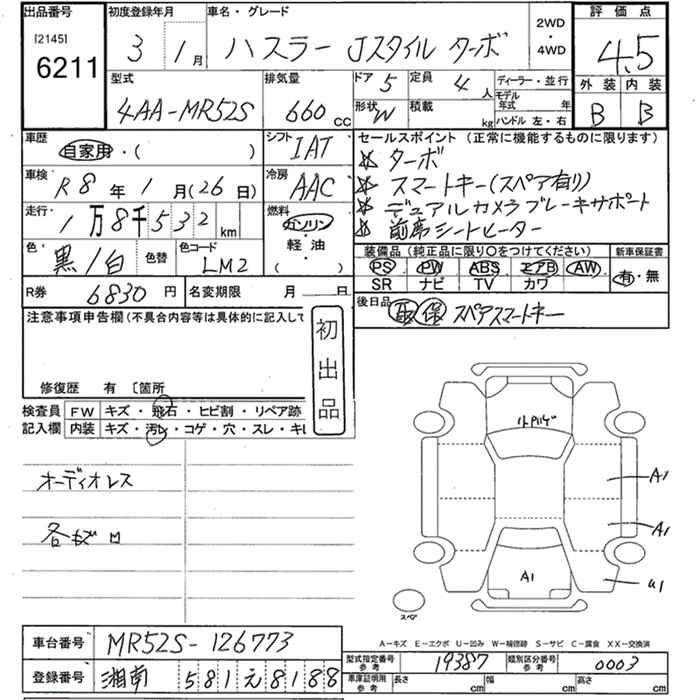 出品番号 初度登録年月 車名・グレード 2WD・4WD 評価点
[2145] 6211 3 1月 ハスラー Jスタイル ターボ 4.5
型式 排気量 ドア 5 定員 4人 ディーラー・並行 外装 内装
4AA-MR52S 660 CC 形状 W 積載 kg モデル年式 年 ハンドル 左・右 B B
車歴 自家用・( ) シフト IAT セールスポイント (正常に機能するものに限ります)
車検 R8年1月(26日) 冷房 AAC ターボ
スマートキー(スペア有り)
走行 1万8千532km 燃料 ガソリン・軽油・( ) デュアルカメラブレーキサポート
前席シートヒーター
色 黒/白 色替 色コード LM2
装備品 (純正品に限り○をつけてください) 新車保証書
PS PW ABS エアB AW 有・無
SR ナビ TV カワ
R券 6830円 名変期限 月 日 後日品 取 保 スペアスマートキー
注意事項申告欄 (不具合内容等は具体的に記入して
初出品
修復歴 有 〔箇所
検査員記入欄 FW キズ・飛石・ヒビ割・リペア跡
内装 キズ・汚レ・コゲ・穴・スレ・キレ
オーディオレス
各キズ凹
A1
A1
A1
スペア
A-キズ E-エクボ U-凹み W-補修跡 S-サビ C-腐食 XX-交換済
車台番号 MR52S-126773 型式指定番号 参考 19387 類別区分番号 参考 0003
登録番号 湘南 581 え 8188 車庫証明用 参考 長さ cm 幅 cm 高さ cm